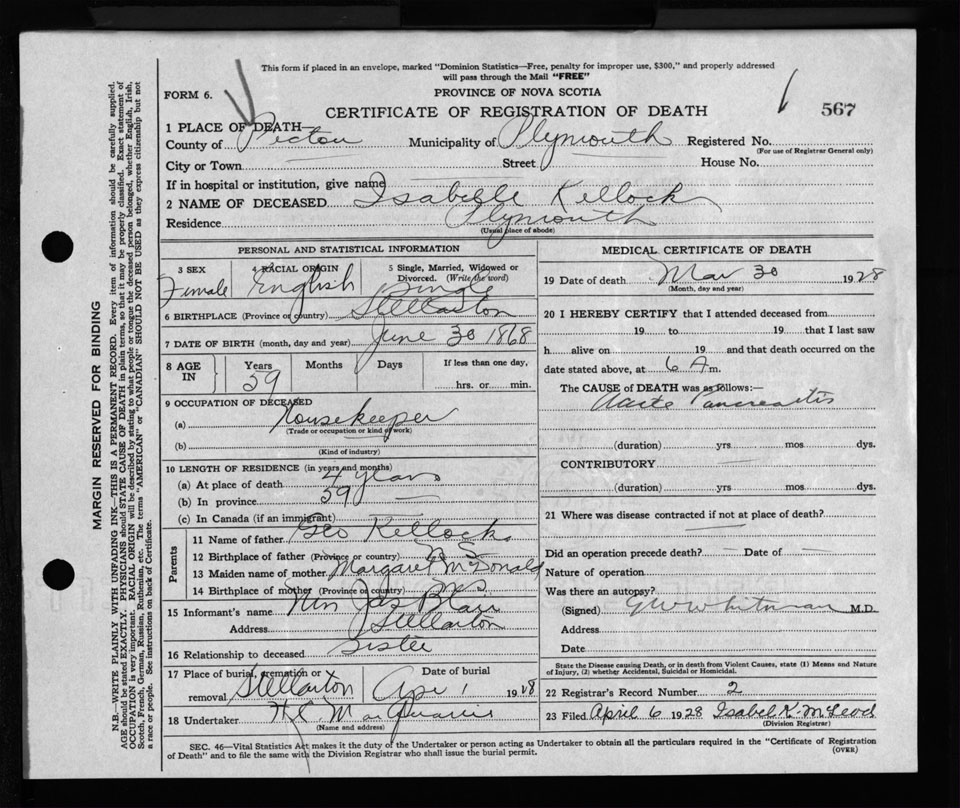 This form if placed in an envelope, marked "Dominion Statistics—Free, penalty for improper use, $300," and properly addressed
will pass through the Mail "FREE"
FORM 6.
PROVINCE OF NOVA SCOTIA
CERTIFICATE OF REGISTRATION OF DEATH
567
1 PLACE OF DEATH—
County of Pictou Municipality of Plymouth Registered No.
(For use of Registrar General only)
City or Town Street House No.
If in hospital or institution, give name
2 NAME OF DECEASED Isabelle Kellock
Residence Plymouth
(Usual place of abode)
PERSONAL AND STATISTICAL INFORMATION
3 SEX 4 RACIAL ORIGIN 5 Single, Married, Widowed or
Divorced. (Write the word)
Female English Single
6 BIRTHPLACE (Province or country) Stellarton
7 DATE OF BIRTH (month, day and year) June 30 1868
8 AGE
IN
Years Months Days If less than one day,
59 hrs. or min.
9 OCCUPATION OF DECEASED
(a) Housekeeper
(Trade or occupation or kind of work)
(b)
(Kind of industry)
10 LENGTH OF RESIDENCE (in years and months)
(a) At place of death 4 years
(b) In province 59
(c) In Canada (if an immigrant)
Parents
11 Name of father Geo Kellock
12 Birthplace of father (Province or country) N S
13 Maiden name of mother Margaret McDonald
14 Birthplace of mother (Province or country) N S
15 Informant's name Mrs Jas Blair
Address Stellarton
16 Relationship to deceased Sister
17 Place of burial, cremation or Date of burial
removal Stellarton Apr 1 1928
18 Undertaker
(Name and address)
MEDICAL CERTIFICATE OF DEATH
19 Date of death Mar 30 1928
(Month, day and year)
20 I HEREBY CERTIFY that I attended deceased from
19 to 19 that I last saw
h alive on 19 and that death occurred on the
date stated above, at 6 A m.
The CAUSE of DEATH was as follows:—
Acute Pancreatitis
(duration) yrs mos dys.
CONTRIBUTORY
(duration) yrs mos dys.
21 Where was disease contracted if not at place of death?
Did an operation precede death? Date of
Nature of operation
Was there an autopsy?
(Signed) G W Whitman M.D.
Address
Date
State the Disease causing Death, or in death from Violent Causes, state (1) Means and Nature
of Injury, (2) whether Accidental, Suicidal or Homicidal.
22 Registrar's Record Number 2
23 Filed April 6 1928 Isabel K. McLeod
(Division Registrar)
SEC. 46—Vital Statistics Act makes it the duty of the Undertaker or person acting as Undertaker to obtain all the particulars required in the "Certificate of Registration
of Death" and to file the same with the Division Registrar who shall issue the burial permit.
(OVER)
MARGIN RESERVED FOR BINDING
N.B.—WRITE PLAINLY WITH UNFADING INK—THIS IS A PERMANENT RECORD. Every item of information should be carefully supplied.
AGE should be stated EXACTLY. PHYSICIANS should STATE CAUSE OF DEATH in plain terms, so that it may be properly classified. Exact statement of
OCCUPATION is very important. RACIAL ORIGIN will be described by stating to what people or tongue the deceased person belonged, whether English, Irish,
Scotch, French, German, Russian, Ruthenian, etc. The terms "AMERICAN" or "CANADIAN" SHOULD NOT BE USED as they express citizenship but not
a race or people. See instructions on back of Certificate.